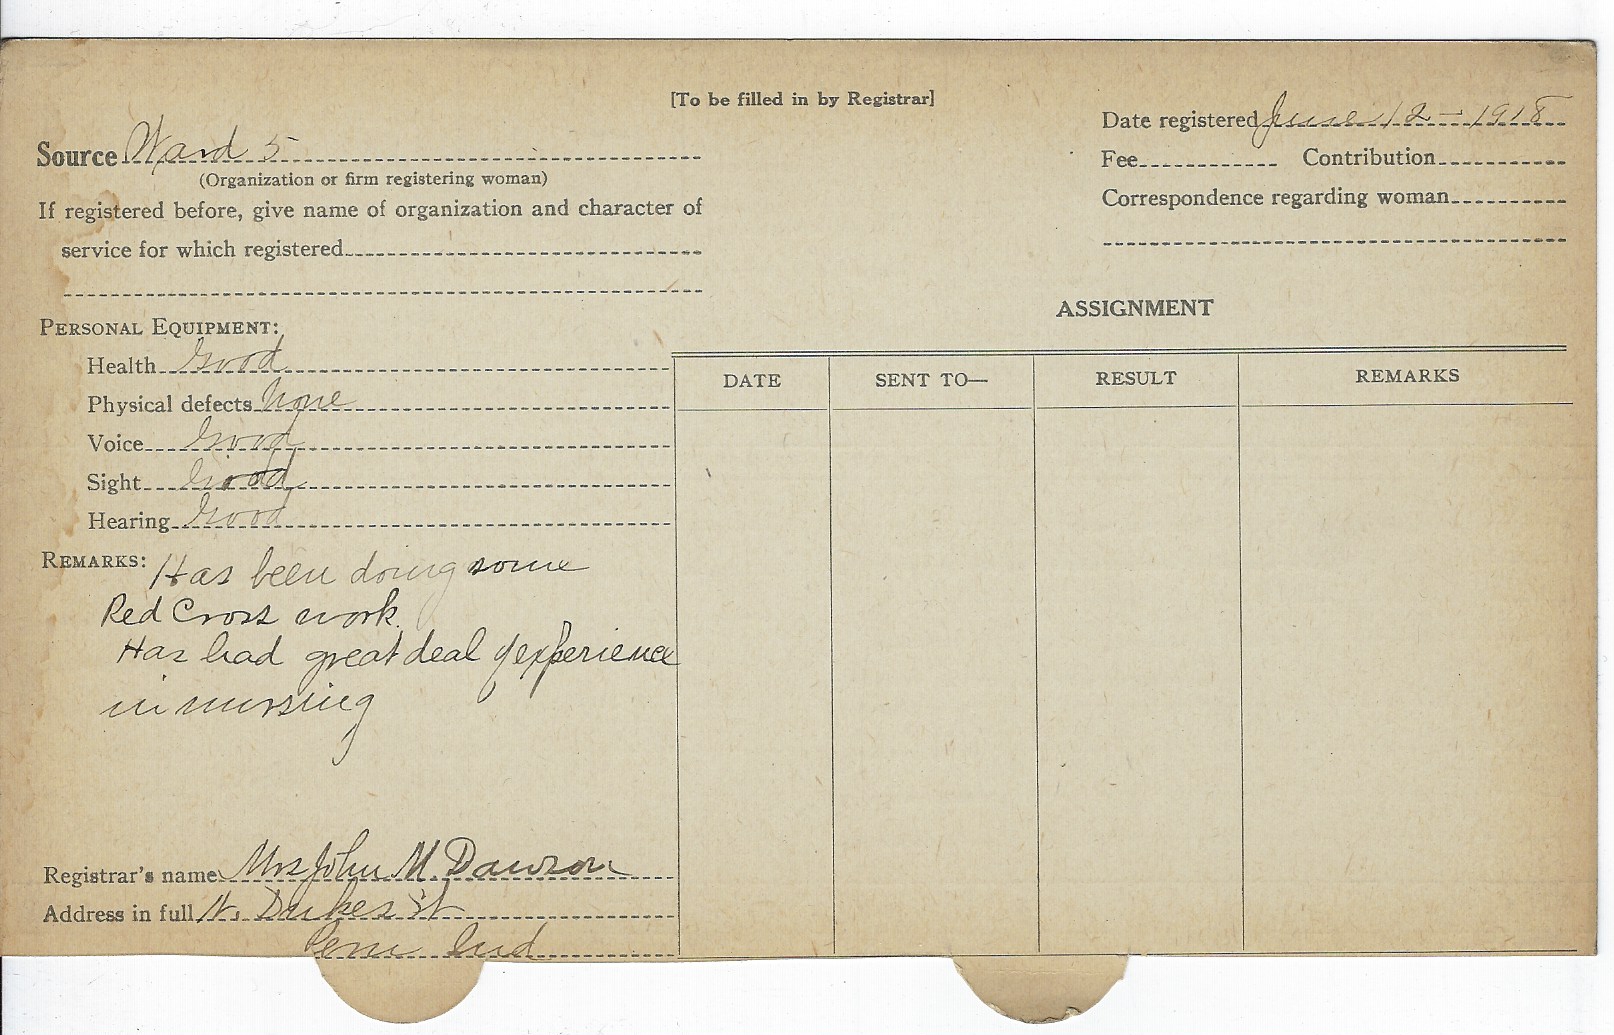 [To be filled in by Registrar]
Date registered June 12 - 1918
Source Ward 5
(Organization or firm registering woman)
Fee Contribution
If registered before, give name of organization and character of
service for which registered
Correspondence regarding woman
ASSIGNMENT
PERSONAL EQUIPMENT:
Health Good
Physical defects None
Voice Good
Sight Good
Hearing Good
DATE SENT TO— RESULT REMARKS
REMARKS: Has been doing some
Red Cross work.
Has had great deal of experience
in nursing
Registrar's name Mrs John M. Dawson
Address in full N. Dukes St
Peru Ind